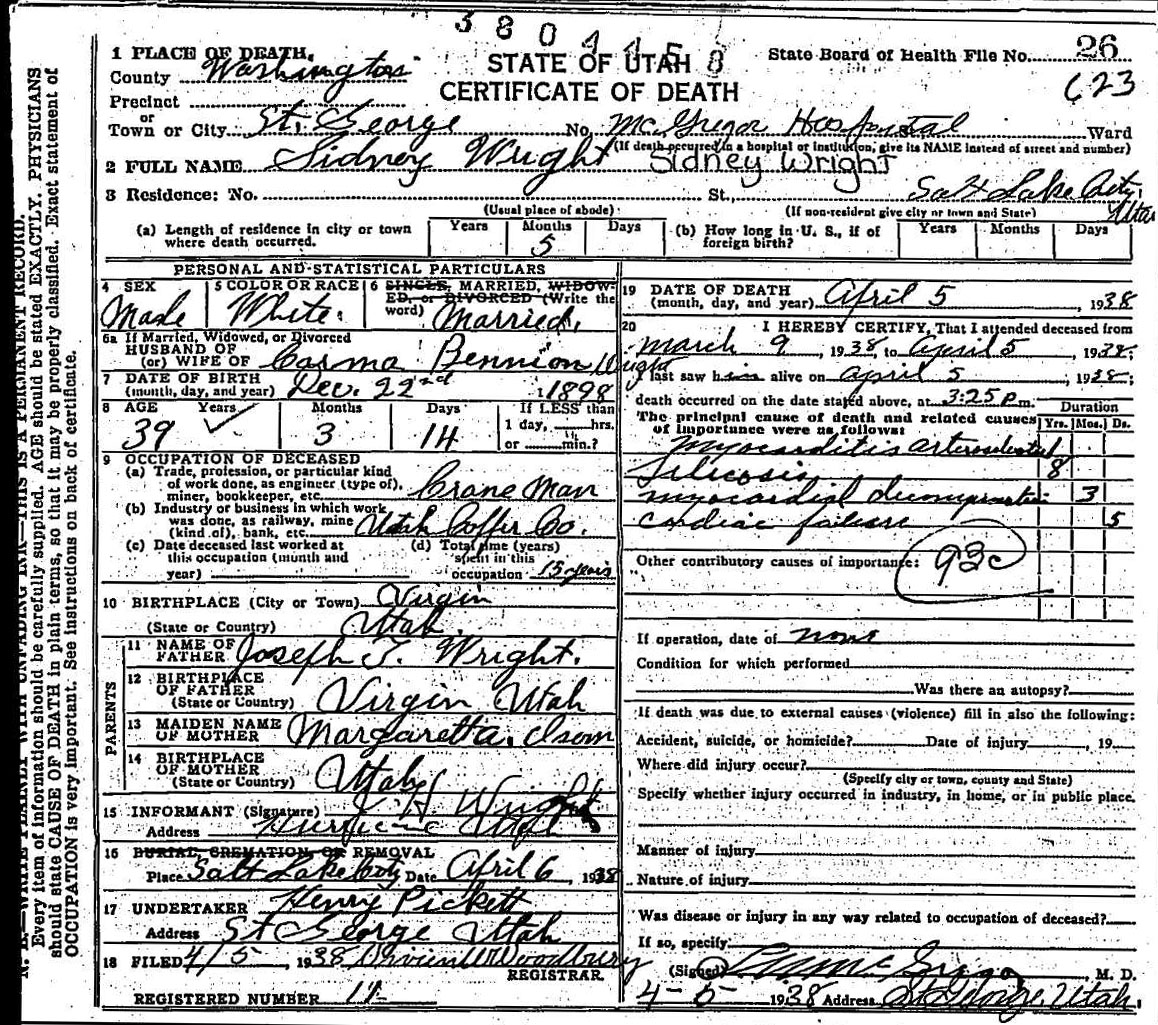 3 8 0 4 4 5 8
1 PLACE OF DEATH. STATE OF UTAH State Board of Health File No. 26
County Washington CERTIFICATE OF DEATH 623
Precinct
or
Town or City St. George No. McGregor Hospital Ward
(If death occurred in a hospital or institution, give its NAME instead of street and number)
2 FULL NAME Sidney Wright Sidney Wright
3 Residence: No. St., Salt Lake City, Utah
(Usual place of abode) (If non-resident give city or town and State)
(a) Length of residence in city or town where death occurred. Years Months 5 Days (b) How long in U. S., if of foreign birth? Years Months Days
PERSONAL AND STATISTICAL PARTICULARS
4 SEX 5 COLOR OR RACE 6 SINGLE, MARRIED, WIDOW-
ED, or DIVORCED (Write the
word)
Male White. Married.
6a If Married, Widowed, or Divorced
HUSBAND OF
(or) WIFE OF Carma Bennion Wright
7 DATE OF BIRTH
(month, day, and year) Dec. 22nd 1898
8 AGE Years Months Days If LESS than
39 3 14 1 day, hrs.
or min.?
9 OCCUPATION OF DECEASED
(a) Trade, profession, or particular kind
of work done, as engineer (type of),
miner, bookkeeper, etc. Crane Man
(b) Industry or business in which work
was done, as railway, mine
(kind of), bank, etc. Utah Copper Co.
(c) Date deceased last worked at
this occupation (month and
year)
(d) Total time (years)
spent in this
occupation 15 years
10 BIRTHPLACE (City or Town) Virgin
(State or Country) Utah
PARENTS
11 NAME OF
FATHER Joseph T. Wright.
12 BIRTHPLACE
OF FATHER
(State or Country) Virgin Utah
13 MAIDEN NAME
OF MOTHER Margaretta Isom
14 BIRTHPLACE
OF MOTHER
(State or Country) Utah
15 INFORMANT (Signature) J. H. Wright
Address Hurricane Utah
16 BURIAL, CREMATION, OR REMOVAL
Place Salt Lake City Date April 6, 1938
17 UNDERTAKER Henry Pickett
Address St George Utah
18 FILED 4/5, 1938 Vivien W Woodbury
REGISTRAR.
REGISTERED NUMBER 14
19 DATE OF DEATH
(month, day, and year) April 5 1938
20 I HEREBY CERTIFY, That I attended deceased from
March 9, 1938, to April 5, 1938;
I last saw him alive on April 5, 1938;
death occurred on the date stated above, at 3:25 p.m.
The principal cause of death and related causes
of importance were as follows: Duration
Yrs. Mos. Ds.
myocarditis
Silicosis 8
myocardial decompensation 3
cardiac failure 5
Other contributory causes of importance: 93c
If operation, date of none
Condition for which performed
Was there an autopsy?
If death was due to external causes (violence) fill in also the following:
Accident, suicide, or homicide? Date of injury , 19
Where did injury occur?
(Specify city or town, county and State)
Specify whether injury occurred in industry, in home, or in public place.
Manner of injury
Nature of injury
Was disease or injury in any way related to occupation of deceased?
If so, specify
(Signed) McGregor, M. D.
4-5 1938 Address St George, Utah.
N. B.—WRITE PLAINLY WITH UNFADING INK—THIS IS A PERMANENT RECORD.
Every item of information should be carefully supplied. AGE should be stated EXACTLY. PHYSICIANS
should state CAUSE OF DEATH in plain terms, so that it may be properly classified. Exact statement of
OCCUPATION is very important. See instructions on back of certificate.